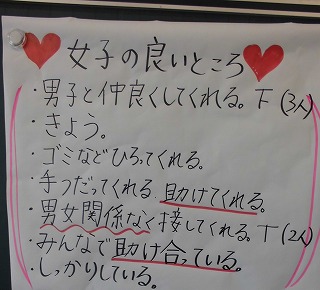 女子の良いところ
・男子と仲良くしてくれる。下(3人)
・きよう。
・ゴミなどひろってくれる。
・手つだってくれる。助けてくれる。
・男女関係なく接してくれる。丅(2人)
・みんなで助け合っている。
・しっかりしている。